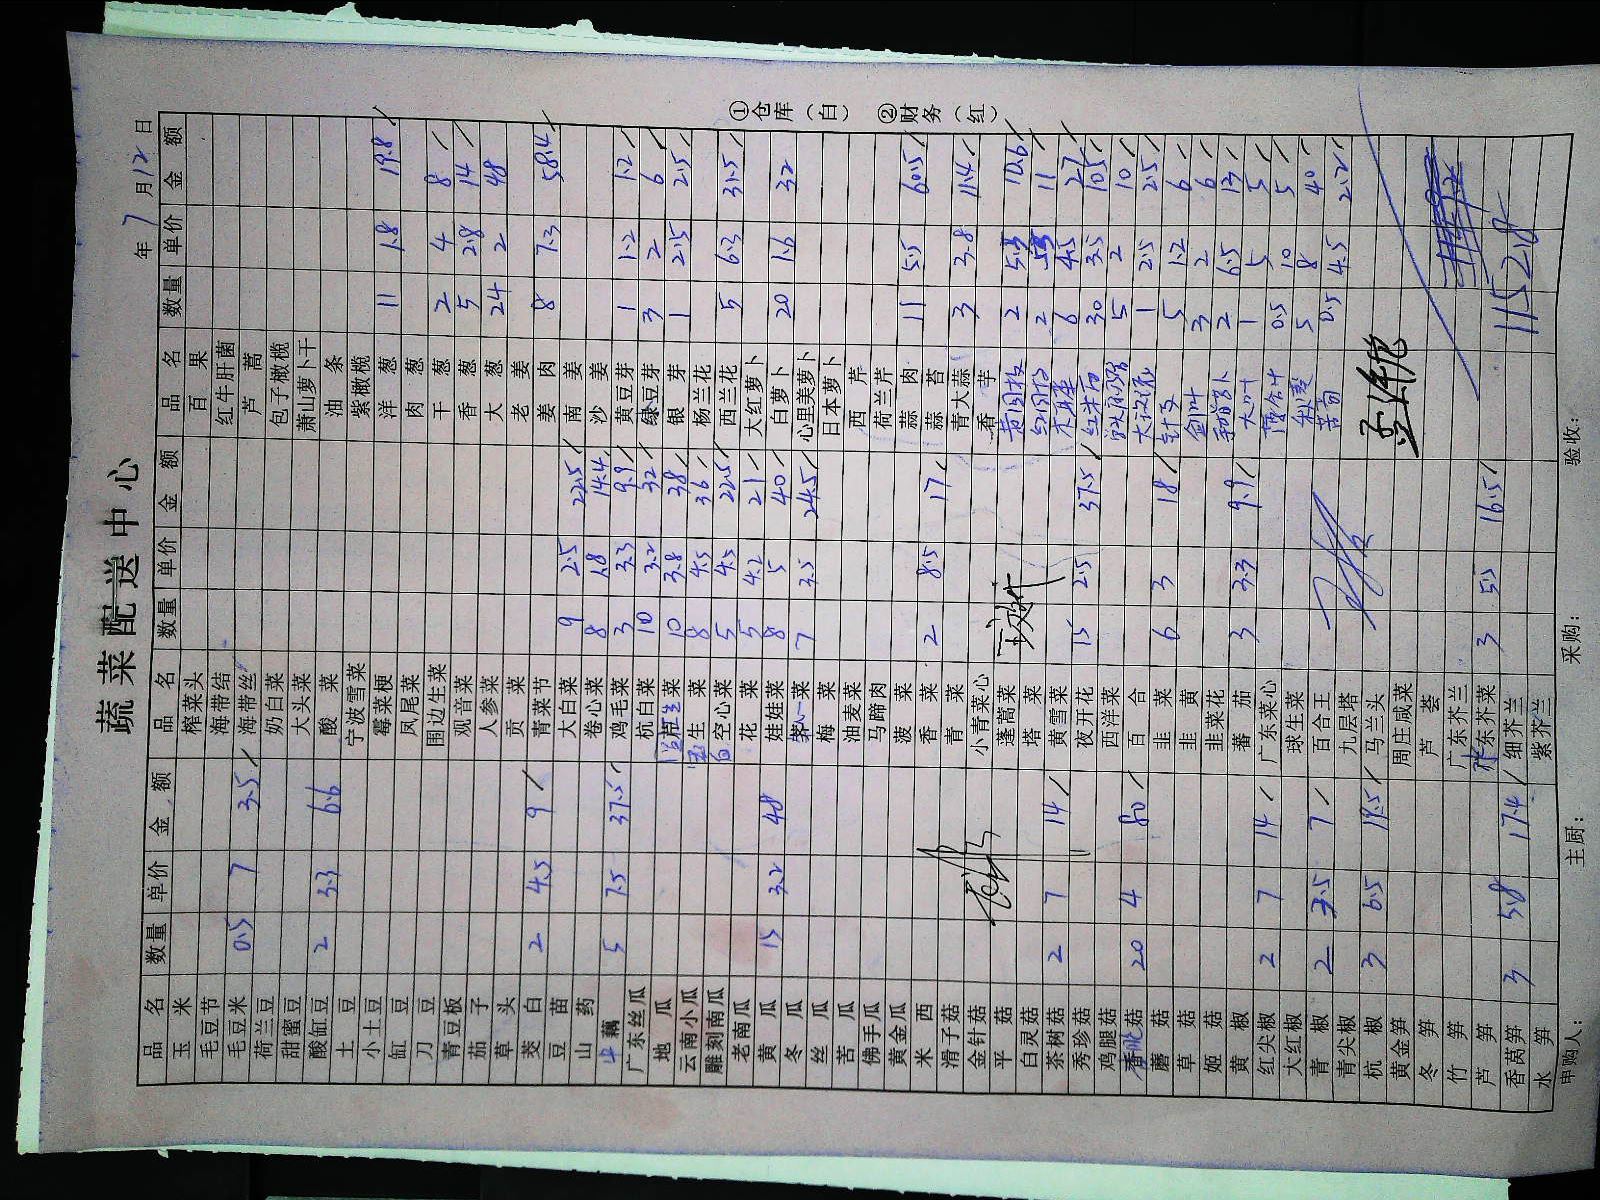 蔬菜配送中心
年 7 月 12 日
品名 数量 单价 金额 品名 数量 单价 金额 品名 数量 单价 金额
玉米 榨菜头 百果
毛豆节 海带结 红牛肝菌
毛豆米 0.5 7 3.5 海带丝 芦蒿
荷兰豆 奶白菜 包子橄榄
甜蜜豆 大头菜 萧山萝卜干
酸缸豆 2 3.3 6.6 酸菜 油条
土豆 宁波雪菜 紫橄榄
小土豆 霉菜梗 洋葱 11 1.8 19.8
缸豆 凤尾菜 肉葱
刀豆 围边生菜 干葱 2 4 8
青豆板 观音菜 香葱 5 2.8 14
茄子 人参菜 大葱 24 2 48
草头 贡菜 老姜
茭白 2 4.5 9 青菜节 姜肉 8 7.3 58.4
豆苗 大白菜 9 2.5 22.5 南姜
山药 卷心菜 8 1.8 14.4 沙姜
藕 5 7.5 37.5 鸡毛菜 3 3.3 9.9 黄豆芽 1 1.2 1.2
广东丝瓜 杭白菜 10 3.2 32 绿豆芽 3 2 6
地瓜 菜 10 3.8 38 银芽 1 2.5 2.5
云南小瓜 生菜 8 4.5 36 杨兰花
雕刻南瓜 空心菜 5 4.5 22.5 西兰花 5 6.3 31.5
老南瓜 花菜 5 4.2 21 大红萝卜
黄瓜 15 3.2 48 娃娃菜 8 5 40 白萝卜 20 1.6 32
冬瓜 菜 7 3.5 24.5 心里美萝卜
丝瓜 梅菜 日本萝卜
苦瓜 油麦菜 西芹
佛手瓜 马蹄肉 荷兰芹
黄金瓜 菠菜 蒜肉 11 5.5 60.5
米西 香菜 2 8.5 17 蒜苔
滑子菇 青菜 青大蒜 3 3.8 11.4
金针菇 小青菜心 香芋
平菇 蓬蒿菜 2 5.3 10.6
白灵菇 塔菜 2 11
茶树菇 2 7 14 黄雪菜 6 4.5 27
秀珍菇 夜开花 15 2.5 37.5 红米苋 30 3.5 105
鸡腿菇 西洋菜 5 2 10
菇 20 4 80 百合 1 2.5 2.5
蘑菇 韭菜 6 3 18 5 1.2 6
草菇 韭黄 3 2 6
姬菇 韭菜花 2 6.5 13
黄椒 番茄 3 3.3 9.9 大叶 1 5 5
红尖椒 2 7 14 广东菜心 0.5 10 5
大红椒 球生菜 秋葵 5 8 40
青椒 2 3.5 7 百合王 苦苣 0.5 4.5 2.2
青尖椒 九层塔
杭椒 3 6.5 19.5 马兰头
黄金笋 周庄咸菜
冬笋 芦荟
竹笋 广东芥兰
芦笋 东芥菜 3 5.5 16.5
香莴笋 3 5.8 17.4 细芥兰 1152.8
水笋 紫芥兰
申购人： 主厨： 采购： 验收：
①仓库（白） ②财务（红）